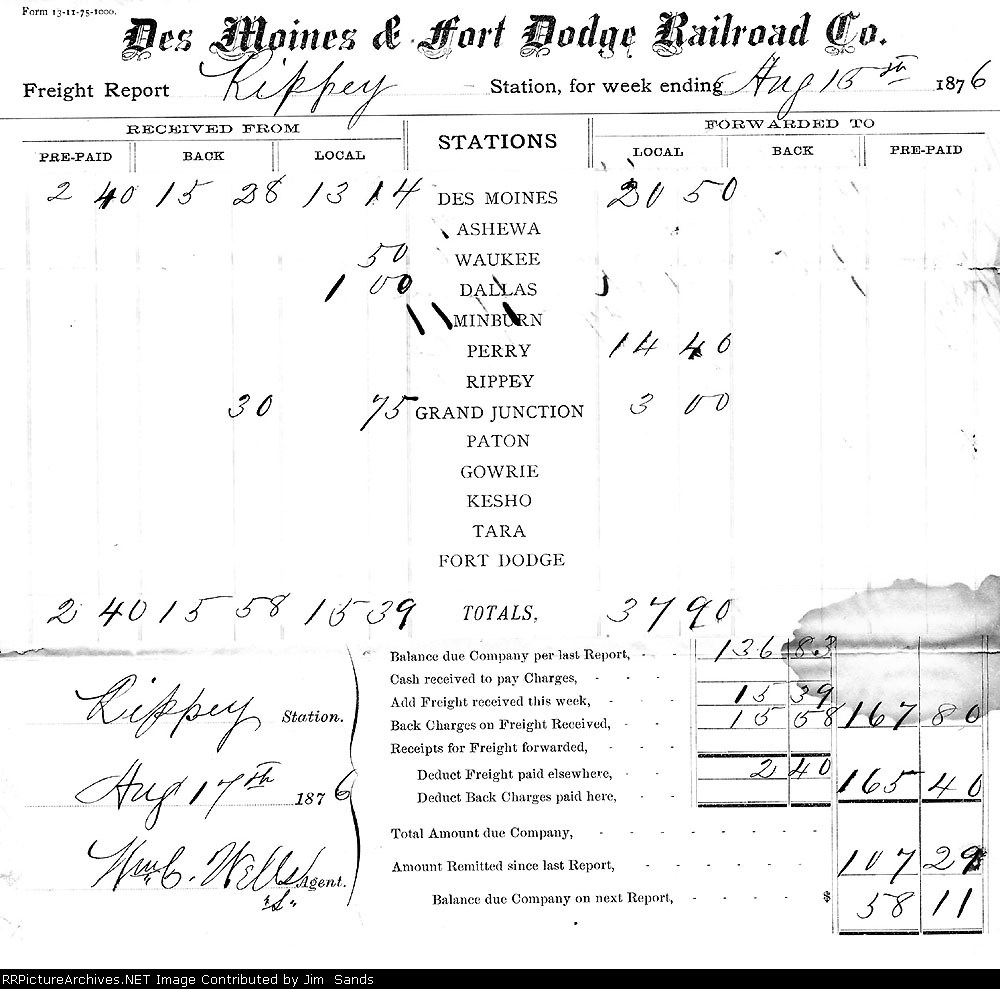 Form 13-11-75-1000.
Des Moines & Fort Dodge Railroad Co.
Freight Report Rippey Station, for week ending Aug 15th 1876
RECEIVED FROM STATIONS FORWARDED TO
PRE-PAID BACK LOCAL LOCAL BACK PRE-PAID
2 40 15 28 13 14 DES MOINES 20 50
ASHEWA
50 WAUKEE
1 00 DALLAS
MINBURN
PERRY 14 40
RIPPEY
30 75 GRAND JUNCTION 3 00
PATON
GOWRIE
KESHO
TARA
FORT DODGE
2 40 15 58 15 39 TOTALS, 37 90
Balance due Company per last Report, - - 136 83
Cash received to pay Charges, - - -
Add Freight received this week, - - 15 39
Back Charges on Freight Received, - - 15 58 167 80
Receipts for Freight forwarded, - - -
Deduct Freight paid elsewhere, - - 2 40 165 40
Deduct Back Charges paid here, - -
Total Amount due Company, - - - - - -
Amount Remitted since last Report, - - - - - 107 29
Balance due Company on next Report, - - - - $ 58 11
Rippey Station.
Aug 17th 1876
Wm C. Wells Agent.
"S"
RRPictureArchives.NET Image Contributed by Jim Sands